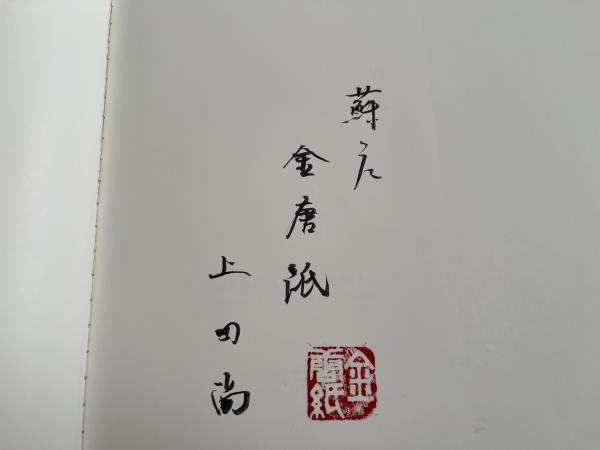 蘇
金唐紙
上田尚
金唐紙